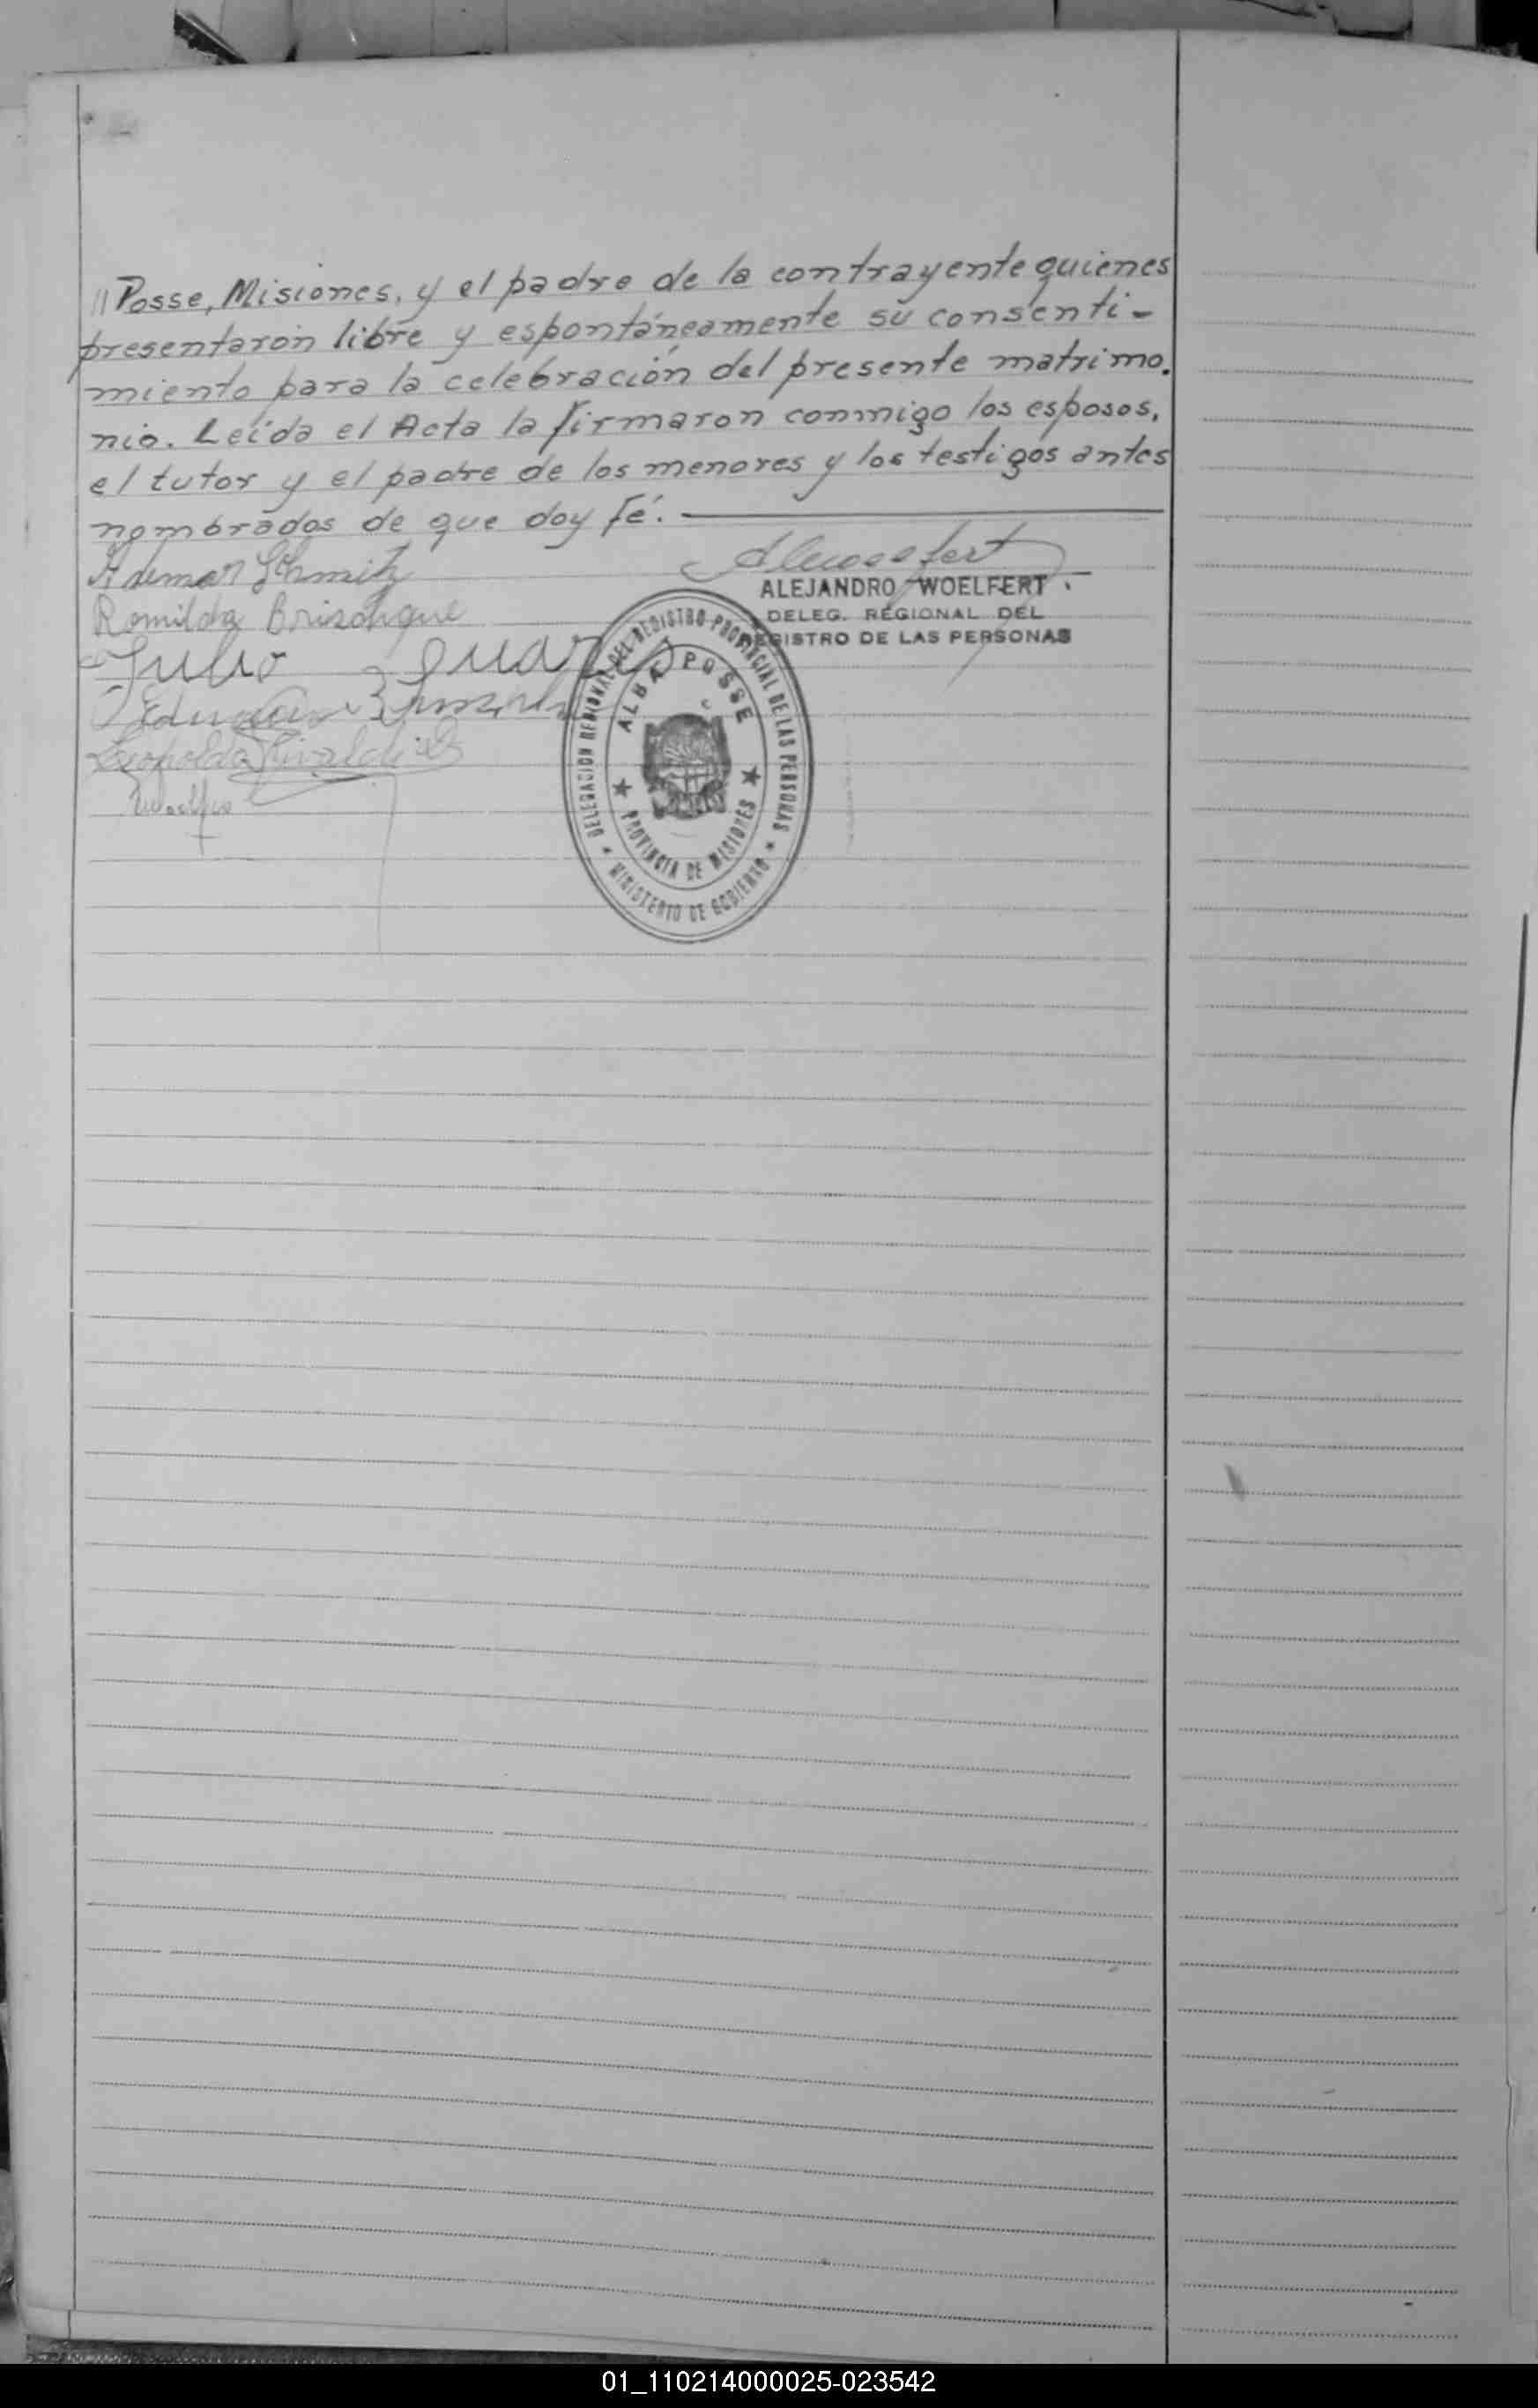 // Posse, Misiones, y el padre de la contrayente quienes
presentaron libre y espontáneamente su consenti-
miento para la celebración del presente matrimo.
nio. Leída el Acta la firmaron conmigo los esposos,
el tutor y el padre de los menores y los testigos antes
nombrados de que doy fé.
Ademar Schmitz
ALEJANDRO WOELFERT
DELEG. REGIONAL DEL
REGISTRO DE LAS PERSONAS
Romilda
Julio
Leopoldo
DELEGACION REGIONAL DEL REGISTRO PROVINCIAL DE LAS PERSONAS
ALBA POSSE
PROVINCIA DE MISIONES
MINISTERIO DE GOBIERNO
01_110214000025-023542